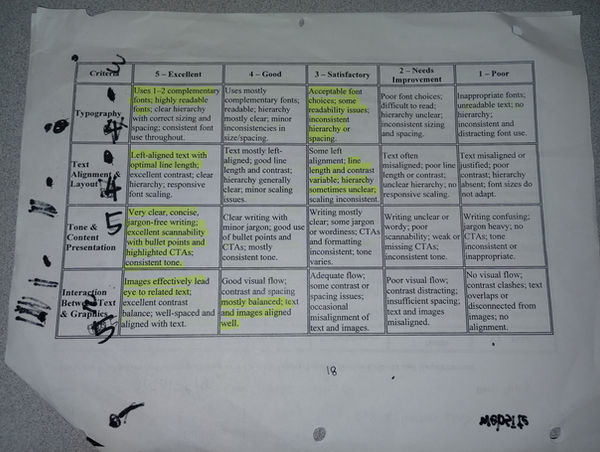 Criteria
5 – Excellent
4 – Good
3 – Satisfactory
2 – Needs
Improvement
1 – Poor
Typography
4
Uses 1–2 complementary
fonts; highly readable
fonts; clear hierarchy
with correct sizing and
spacing; consistent font
use throughout.
Uses mostly
complementary fonts;
readable; hierarchy
mostly clear; minor
inconsistencies in
size/spacing.
Acceptable font
choices; some
readability issues;
inconsistent
hierarchy or
spacing.
Poor font choices,
difficult to read;
hierarchy unclear;
inconsistent sizing
and spacing.
Inappropriate fonts;
unreadable text; no
hierarchy;
inconsistent and
distracting font use.
Text
Alignment &
Layout
4
Left-aligned text with
optimal line length;
excellent contrast; clear
hierarchy; responsive
font scaling.
Text mostly left-
aligned; good line
length and contrast;
hierarchy generally
clear; minor scaling
issues.
Some left
alignment; line
length and contrast
variable; hierarchy
sometimes unclear;
scaling inconsistent.
Text often
misaligned; poor line
length or contrast;
unclear hierarchy; no
responsive scaling.
Text misaligned or
justified; poor
contrast; hierarchy
absent; font sizes do
not adapt.
Tone &
Content
Presentation
5
Very clear, concise,
jargon-free writing;
excellent scannability
with bullet points and
highlighted CTAs;
consistent tone.
Clear writing with
minor jargon; good
use of bullet points and
CTAs; mostly
consistent tone.
Writing mostly
clear; some jargon
or wordiness; CTAs
and formatting
inconsistent; tone
varies.
Writing unclear or
wordy; poor
scannability; weak or
missing CTAs;
inconsistent tone.
Writing confusing;
jargon heavy; no
CTAs; tone
inconsistent or
inappropriate.
Interaction
Between Text
& Graphics
5
Images effectively lead
eye to related text;
excellent contrast
balance; well-spaced and
aligned with text.
Good visual flow;
contrast and spacing
mostly balanced; text
and images aligned
well.
Adequate flow;
some contrast or
spacing issues;
occasional
misalignment of
text and images.
Poor visual flow;
contrast distracting;
insufficient spacing;
text and images
misaligned.
No visual flow;
contrast clashes; text
overlaps or
disconnected from
images; no
alignment.
18
website